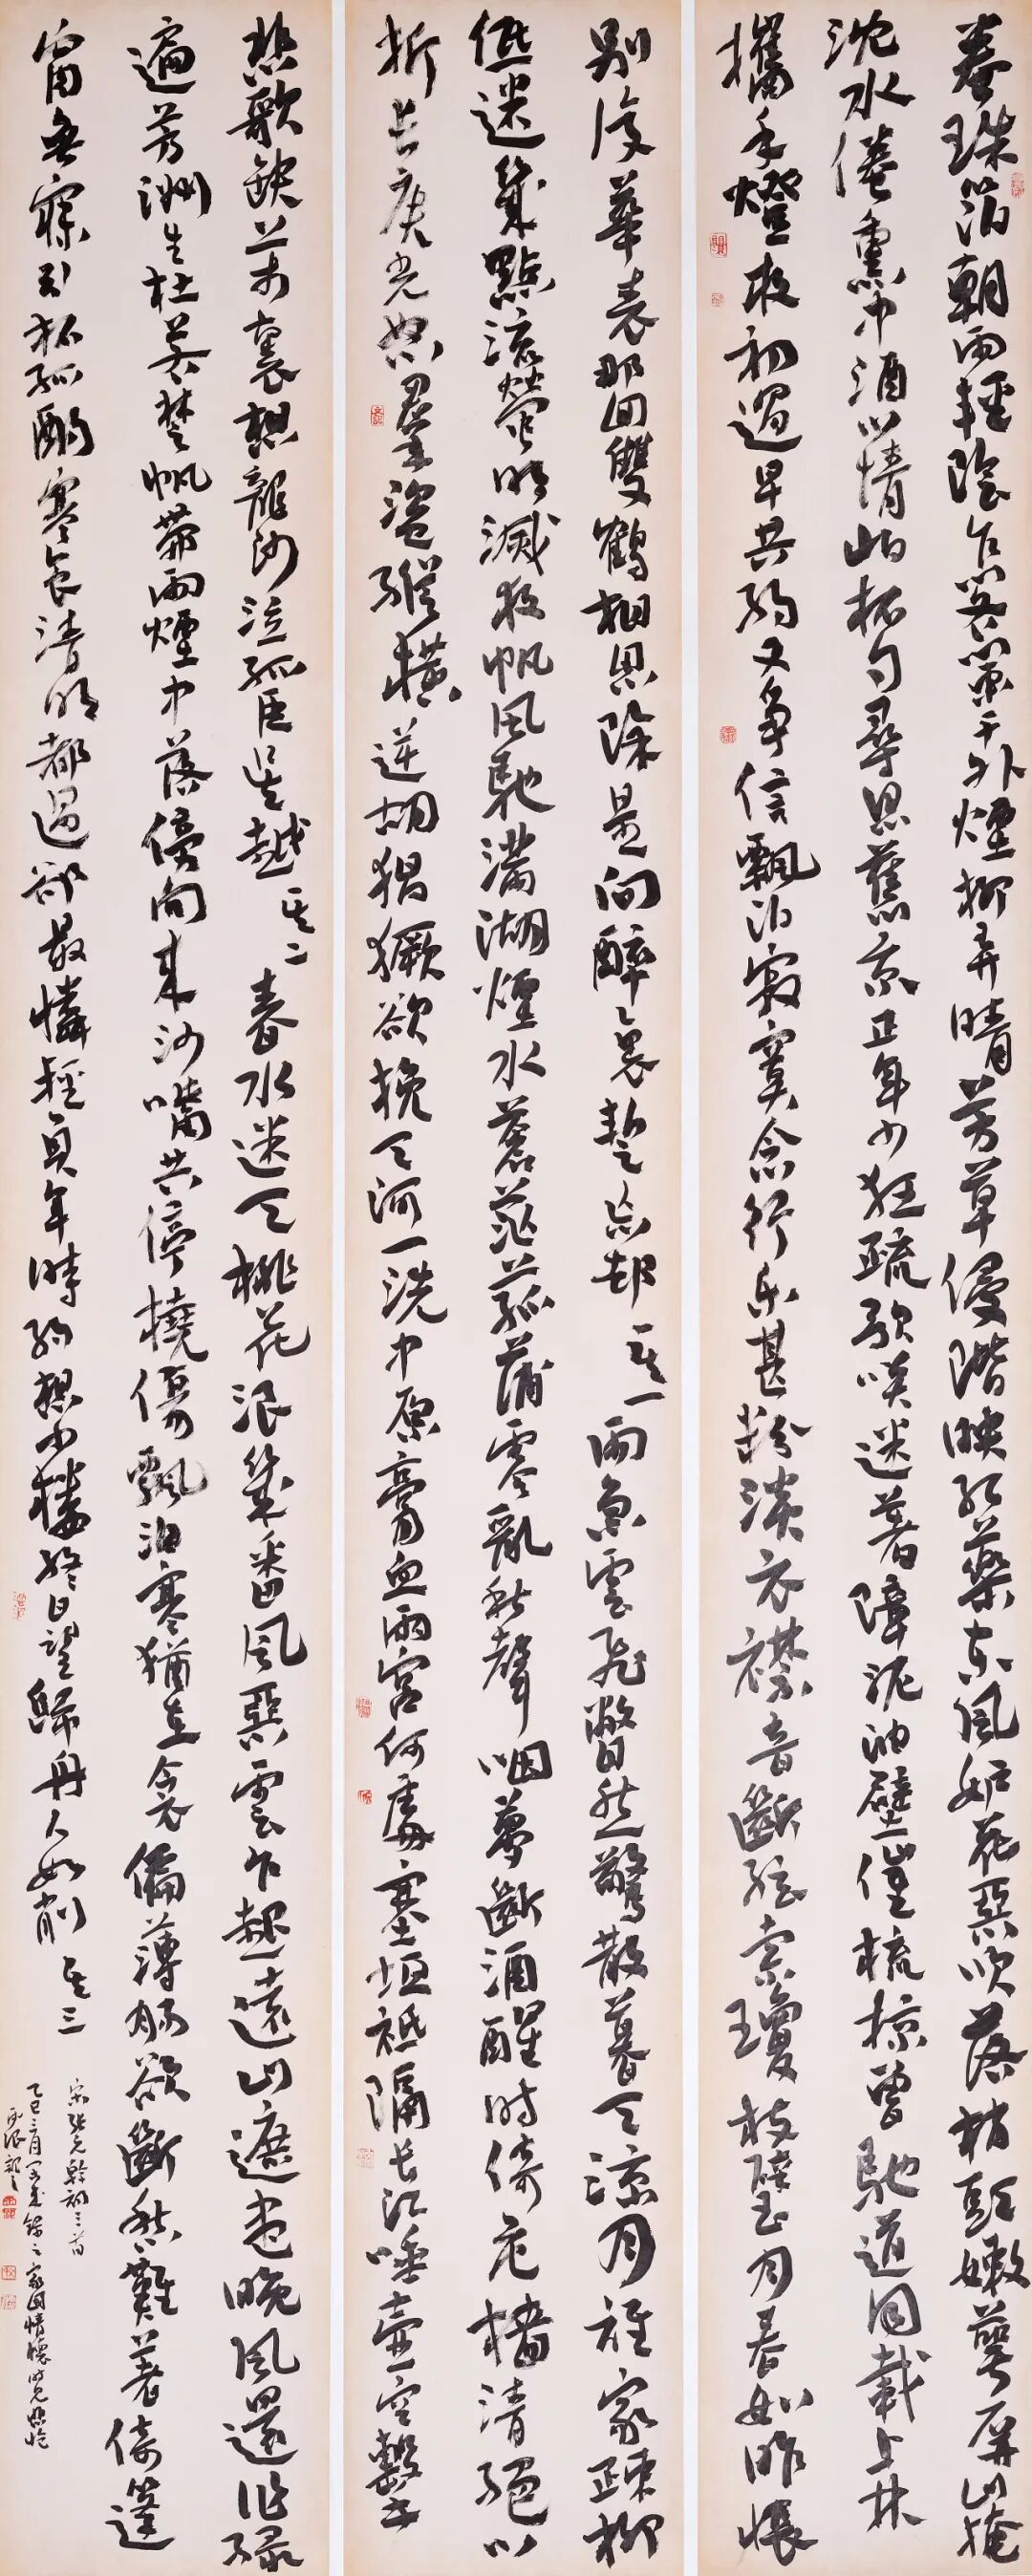 卷珠箔朝雨輕陰乍閣闌干外煙柳弄晴芳草侵階映紅藥東風妒花惡吹落梢頭嫩萼屏山掩
沈水倦熏中酒心情怕杯勺尋思舊京正年少狂疏歌笑迷著障泥油壁催梳掠曾馳道同載上林
攜手燈夜初過早共約又爭信飄泊寂寞念行樂甚粉淡衣襟音斷弦索瓊枝璧月春如昨悵
別後華表那回雙鶴相思除是向醉裏暫忘却 其一 雨急雲飛瞥然驚散暮天涼月誰家疎柳
低迷幾點流螢明滅夜帆風馳滿湖煙水蒼茫菰蒲零亂秋聲咽夢斷酒醒時倚危檣清絕心
折長庚光怒群盜縱橫逆胡猖獗欲挽天河一洗中原膏血兩宮何處塞垣祗隔長江唾壺空擊
悲歌缺萬里想龍沙泣孤臣吳越 其二 春水迷天桃花浪幾番風惡雲乍起遠山遮盡晚風還作綠
遍芳洲生杜若楚帆帶雨煙中落傍向來沙嘴共停橈傷飄泊寒猶在衾偏薄腸欲斷愁難著倚篷
窗無寐引杯孤酌寒食清明都過卻最憐輕負年時約想小樓終日望歸舟人如削 其三
宋張元幹詞三首
乙巳二月